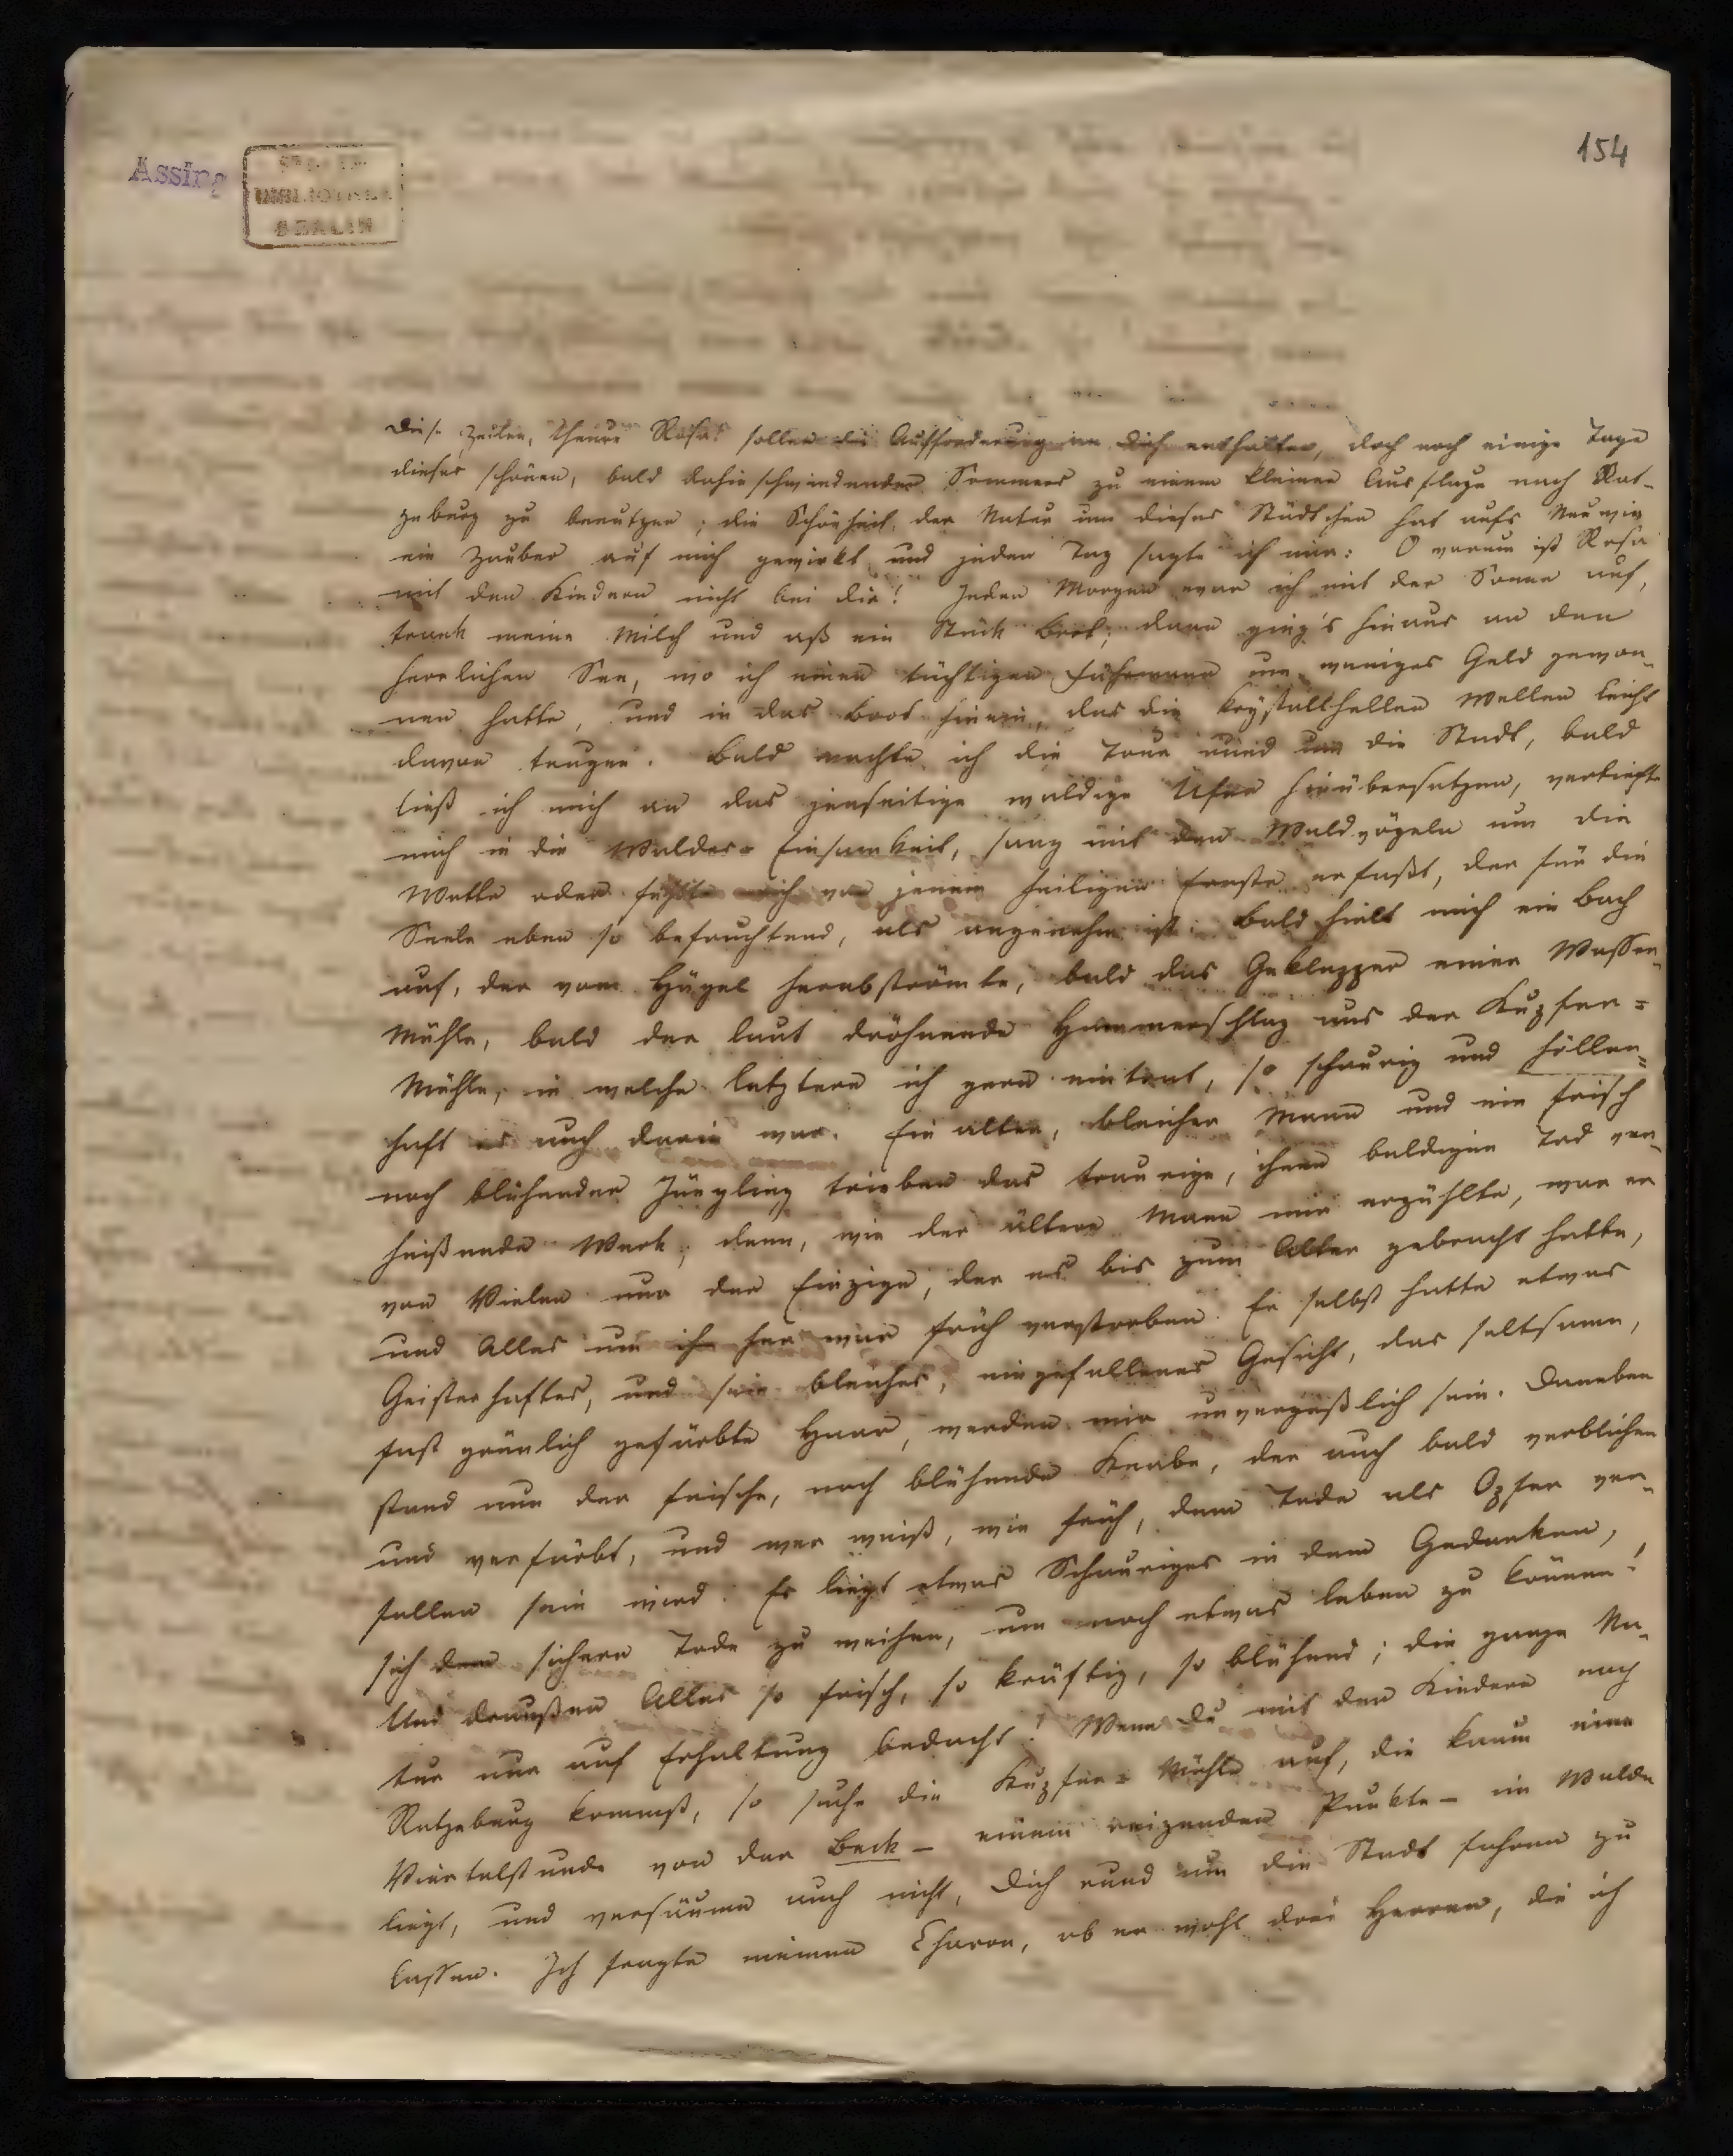 154
Assing
BIBLIOTHEK
BERLIN
Diese Zeilen, theure Rosa! sollen die Aufforderung an Dich enthalten, doch noch einige Tage
dieses schönen, bald dahinschwindenden Sommers zu einem kleinen Ausfluge nach Rat-
zeburg zu benutzen; die Schönheit der Natur um dieses Städtchen hat aufs Neu wie
ein Zauber auf mich gewirkt und jeden Tag sagte ich mir: O warum ist Rosa
mit den Kindern nicht bei dir! Jeden Morgen war ich mit der Sonne auf,
trank meine Milch und aß ein Stück Brot; dann ging's hinaus an den
herrlichen See, wo ich einen tüchtigen Fährmann um weniges Geld gewon-
nen hatte, und in das Boot hinein, das die krystallhellen Wellen leicht
davon trugen. Bald machte ich die Tour rund um die Stadt, bald
ließ ich mich an das jenseitige waldige Ufer hinübersetzen, vertiefte
mich in die Waldes-Einsamkeit, sang mit den Waldvögeln um die
Wette oder fühlte mich von jenem heiligen Ernste erfaßt, der für die
Seele eben so befruchtend, als angenehm ist. Bald hielt mich ein Bach
auf, der vom Hügel herabströmte, bald das Geklapper einer Wasser-
Mühle, bald der laut dröhnende Hammerschlag aus der Kupfer=
Mühle, in welche letztere ich gern eintrat, so schaurig und höllen=
haft es auch darin war. Ein alter, bleicher Mann und ein frisch
noch blühender Jüngling trieben das traurige, ihnen baldigen Tod ver-
heißende Werk; denn, wie der ältere Mann mir erzählte, war er
von Vielen nur der Einzige, der es bis zum Alter gebracht hatte,
und Alles um ihn her war früh verstorben. Er selbst hatte etwas
Geisterhaftes, und sein bleiches, eingefallenes Gesicht, das seltsame,
fast grünlich gefärbte Haar, werden mir unvergeßlich sein. Daneben
stand nun der frische, noch blühende Knabe, der auch bald verblichen
und verfärbt, und wer weiß, wie früh, dem Tode als Opfer ver-
fallen sein wird. Es liegt etwas Schauriges in dem Gedanken,
sich dem sichern Tode zu weihen, um noch etwas leben zu können!
Und draußen Alles so frisch, so kräftig, so blühend; die ganze Na-
tur nur auf Erhaltung bedacht! Wenn Du mit den Kindern nach
Ratzeburg kommst, so suche die Kupfer=Mühle auf, die kaum eine
Viertelstunde von der Beck – einem reizenden Punkte – im Walde
liegt, und versäume auch nicht, Dich rund um die Stadt fahren zu
lassen. Ich fragte meinen Charon, ob er wohl drei Herren, die ich